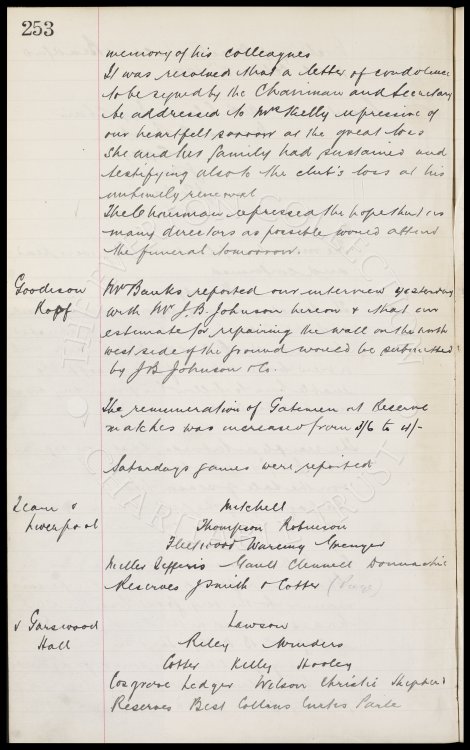 253
memory of his colleagues
It was resolved that a letter of condolence
to be signed by the Chairman and Secretary
be addressed to Mrs Kelly expressive of
our heartfelt sorrow at the great loss
she and her family had sustained and
testifying also to the club's loss at his
untimely removal
The Chairman expressed the hope that as
many directors as possible would attend
the funeral tomorrow.
Goodison
Mr Banks reported our interview yesterday
with Mr J B Johnson hereon & that an
estimate for repairing the wall on the north
west side of the ground would be submitted
by J B Johnson & Co.
The remuneration of Gatemen at Reserve
matches was increased from 3/6 to 4/-
Saturdays games were reported
Team v
Liverpool
Mitchell
Thompson Robinson
Fleetwood Wareing Grenyer
Miller Jefferis Gault Clennell Donnachie
Reserves J Smith & Cotter
v Garswood
Hall
Lawson
Riley Winders
Cotter Kelly Hooley
Cosgrove Ledger Wilson Christie Shepherd
Reserves Best Collins Curtis Parle
THE EVERTON COLLECTION
CHARITABLE TRUST